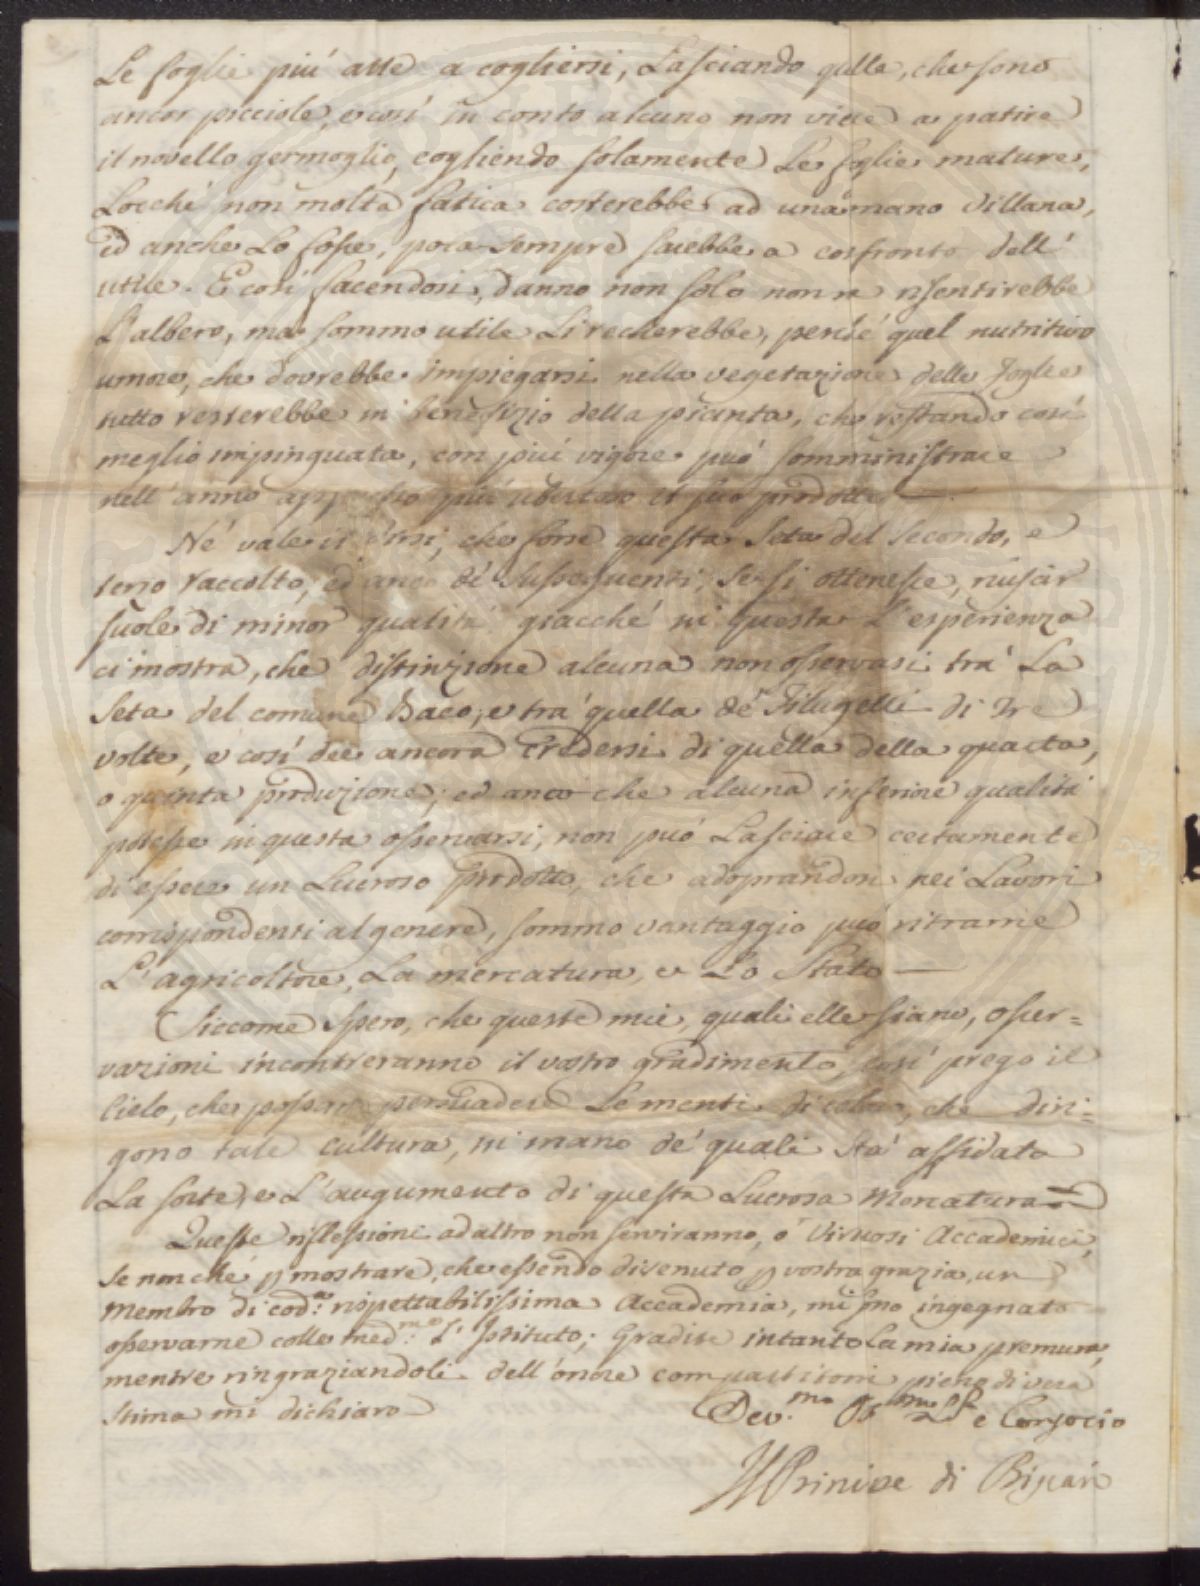 Le foglie più atte a cogliersi, Lasciando qlle, che sono
ancor picciole, e così in conto alcuno non viene a patire
il novello germoglio, cogliendo solamente Le foglie mature,
Locché non molta fatica costerebbe ad una mano Villana,
ed anche Lo fosse, poca sempre sarebbe a confronto dell'
utile. E così facendosi, danno non solo non ne risentirebbe
L'albero, ma sommo utile Li recherebbe, perché quel nutritivo
umore, che dovrebbe impiegarsi nella vegetazione delle foglie
tutto resterebbe in benefizio della pianta, che restando così
meglio impinguata, con più vigore può somministrare
nell'anno appresso più ubertoso il suo prodotto —
Né vale il dirsi, che forse questa Seta del Secondo, e
terzo raccolto, ed anco de' Susseguenti, se si ottenesse, riuscir
suole di minor qualità giacché in questa L'esperienza
ci mostra, che distinzione alcuna non osservasi trà La
Seta del comune Baco, e trà quella de' Filugelli di Tre
volte, e così dee ancora credersi di quella della quarta,
o quinta produzione; ed anco che alcuna inferiore qualità
potesse in questa osservarsi, non può Lasciare certamente
di essere un Lucroso prodotto, che adoprandosi nei Lavori
corrispondenti al genere, sommo vantaggio può ritrarne
L'agricoltore, La mercatura, e Lo Stato —
Siccome Spero, che queste mie, quali elle siano, osser=
vazioni incontreranno il vostro gradimento, così prego il
Cielo, che possano persuadere Le menti di coloro, che diri=
gono tale cultura, in mano de' quali stà affidata
La sorte, e L'augumento di questa Lucrosa Mercatura
Queste riflessioni ad altro non serviranno, ò Virtuosi Accademici,
Se non che p mostrare, che essendo divenuto p vostra grazia, un
Membro di cod.a rispettabilissima Accademia, mi sono ingegnato
osservarne colle med.me L'Istituto; Gradite intanto La mia premura,
mentre ringraziandoli dell'onore compartitomi pieno di vera
stima mi dichiaro
Dev.mo Ob.mo e Consocio
Il Principe di Biscari